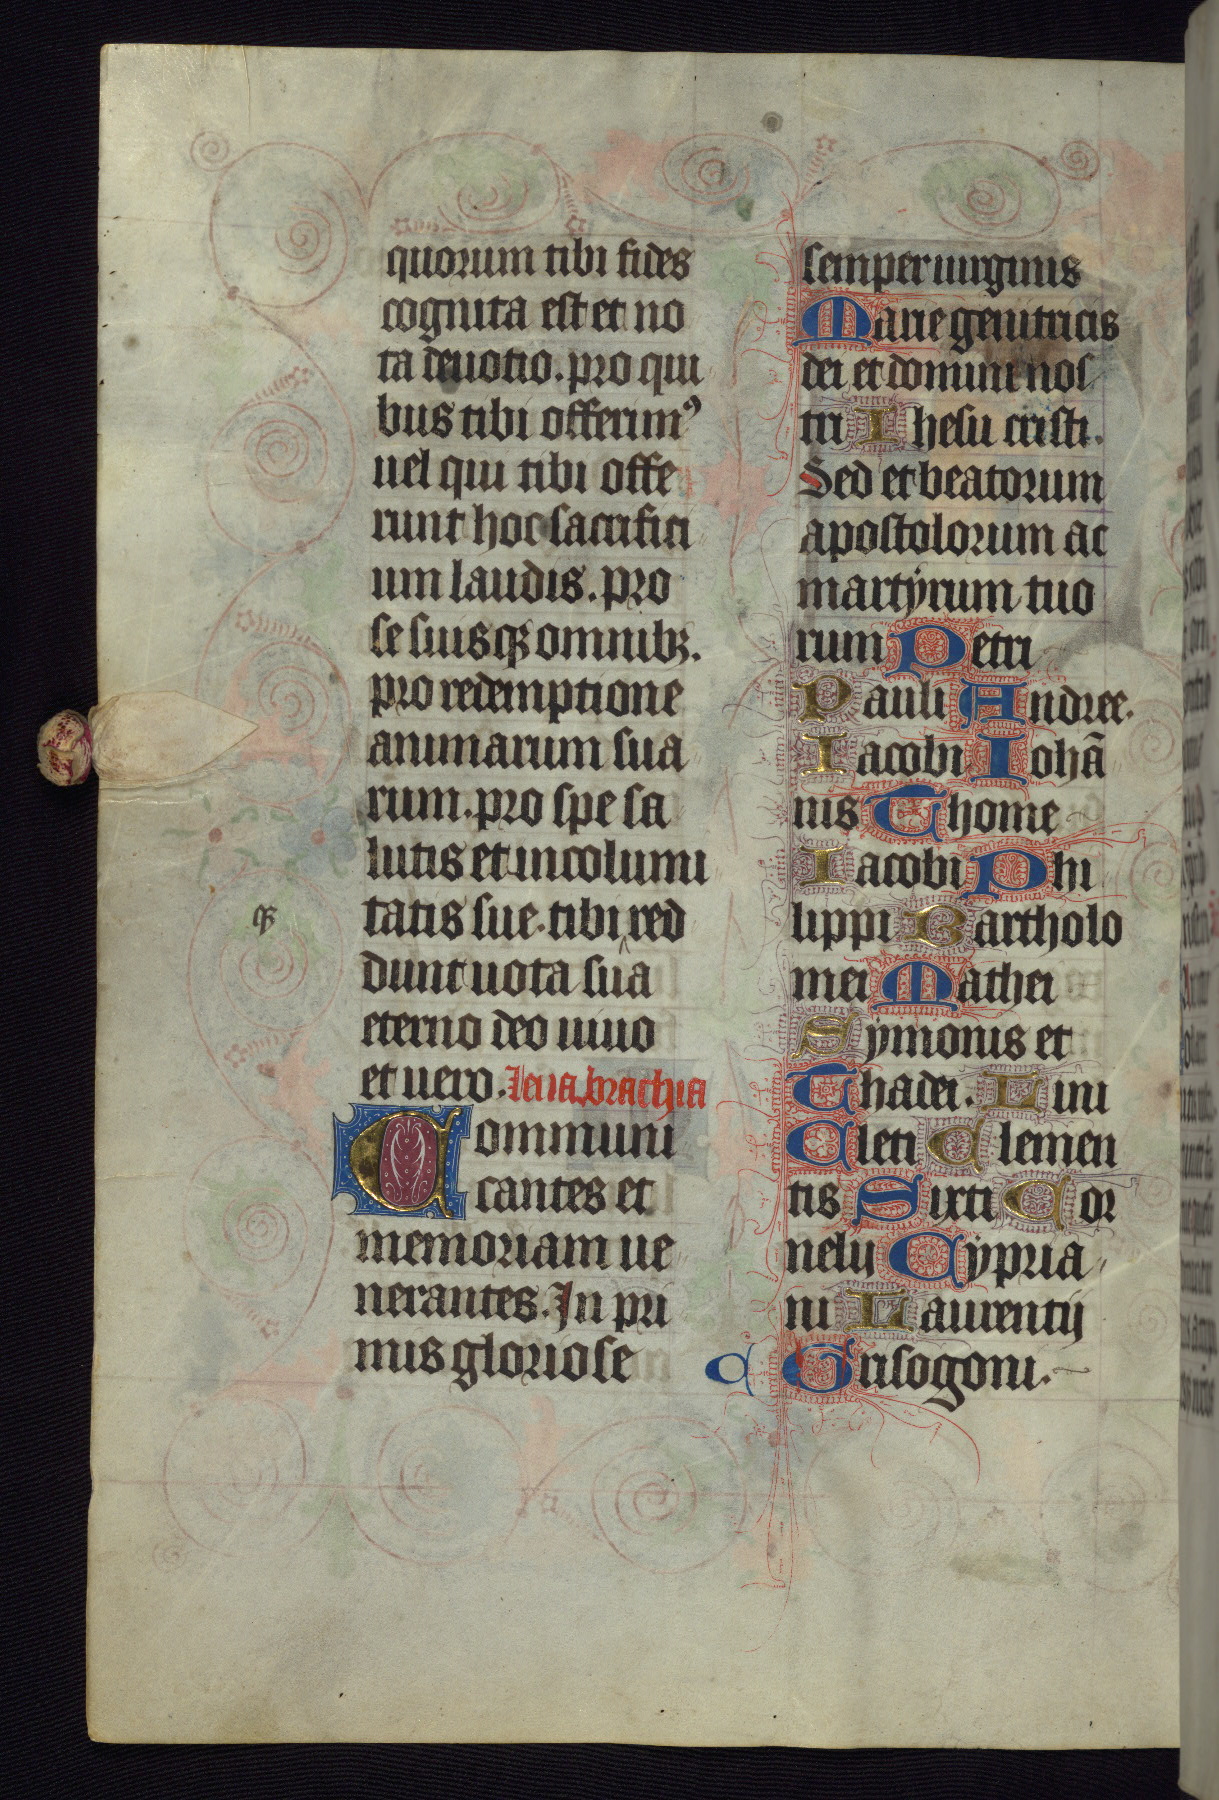 quorum tibi fides
cognita est et no
ta deuotio. pro qui
bus tibi offerimꝰ
uel qui tibi offe
runt hoc sacrifici
um laudis. pro
se suisqꝫ omnibꝫ.
pro redemptione
animarum sua
rum. pro spe sa
lutis et incolumi
qꝫ
tatis sue. tibi‸red
dunt uota sua
eterno deo uiuo
et uero. Leua brachia
Communi
cantes et
memoriam ue
nerantes. In pri
mis gloriose
semper uirginis
Marie genitricis
dei et domini nos
tri Ihesu cristi.
Sed et beatorum
apostolorum ac
martẏrum tuo
rum Petri
Pauli Andree.
Iacobi Iohā
nis Thome
Iacobi Phi
lippi Bartholo
mei Mathei
Sẏmonis et
Thadei. Lini
Cleti Clemen
tis Sixti Cor
nelii Cẏpria
ni Laurentij
C Grisogoni.